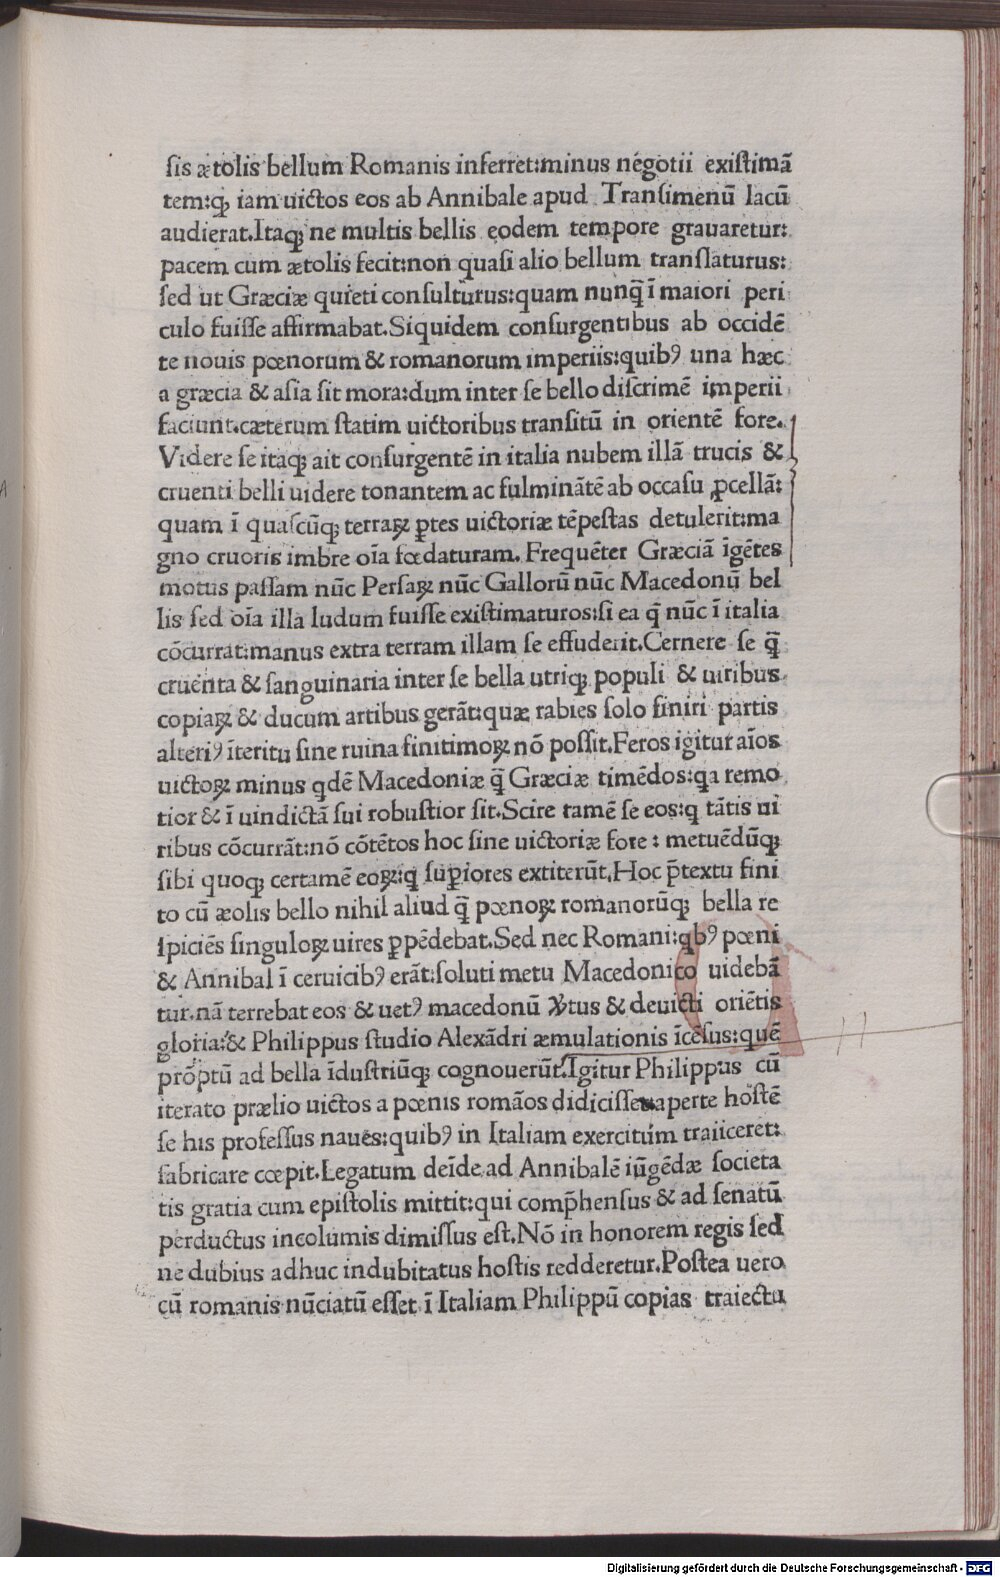 ſis ætolis bellum Romanis inferret:minus negotii exiſtimā
tem:qꝫ iam uictos eos ab Annibale apud Tranſimenū lacū
audierat.Itaqꝫ ne multis bellis eodem tempore grauaretur:
pacem cum ætolis fecit:non quaſi alio bellum tranſlaturus:
ſed ut Græciæ quieti conſulturus:quam nunq̄ ī maiori peri
culo fuiſſe affirmabat.Siquidem conſurgentibus ab occidē
te nouis pœnorum & romanorum imperiis:quibꝰ una hæc
a græcia & aſia ſit mora:dum inter ſe bello diſcrimē imperii
faciunt.cæterum ſtatim uictoribus tranſitū in orientē fore.
Videre ſe itaqꝫ ait conſurgentē in italia nubem illā trucis &
cruenti belli uidere tonantem ac fulminātē ab occaſu ꝓcellā:
quam ī quaſcūqꝫ terraꝝ ꝑtes uictoriæ tēpeſtas detulerit:ma
gno cruoris imbre oīa fœdaturam.Frequēter Græciā īgētes
motus paſſam nūc Perſaꝝ nūc Gallorū nūc Macedonū bel
lis ſed oīa illa ludum fuiſſe exiſtimaturos:ſi ea q̄ nūc ī italia
cōcurrat:manus extra terram illam ſe effuderit.Cernere ſe q̄
cruenta & ſanguinaria inter ſe bella utriqꝫ populi & uiribus
copiaꝝ & ducum artibus gerāt:quæ rabies ſolo finiri partis
alteriꝰ īteritu ſine ruina finitimoꝝ nō poſſit.Feros igitur aīos
uictoꝝ minus qdē Macedoniæ q̄ Græciæ timēdos:qa remo
tior & ī uindictā ſui robuſtior ſit.Scire tamē ſe eos:q tātis ui
ribus cōcurrāt:nō cōtētos hoc ſine uictoriæ fore : metuēdūqꝫ
ſibi quoqꝫ certamē eoꝝ:q ſuꝑiores extiterūt.Hoc p̄textu fini
to cū æolis bello nihil aliud q̄ pœnoꝝ romanorūqꝫ bella re
ſpiciēs ſinguloꝝ uires ꝑpēdebat.Sed nec Romani:qbꝰ pœni
& Annibal ī ceruicibꝰ erāt:ſoluti metu Macedonico uidebā
tur.nā terrebat eos & uetꝰ macedonū v̓tus & deuicti oriētis
gloria:& Philippus ſtudio Alexādri æmulationis īcēſus:quē
prōptū ad bella īduſtriūqꝫ cognouerūt.Igitur Philippus cū
iterato prælio uictos a pœnis romāos didiciſſet aperte hoſtē
ſe his profeſſus naues:quibꝰ in Italiam exercitum traiiceret:
fabricare cœpit.Legatum deīde ad Annibalē iūgēdæ ſocieta
tis gratia cum epiſtolis mittit:qui comp̄henſus & ad ſenatū
perductus incolumis dimiſſus eſt.Nō in honorem regis ſed
ne dubius adhuc indubitatus hoſtis redderetur.Poſtea uero
cū romanis nūciatū eſſet ī Italiam Philippū copias traiectu
Digitalisierung gefördert durch die Deutsche Forschungsgemeinschaft - DFG